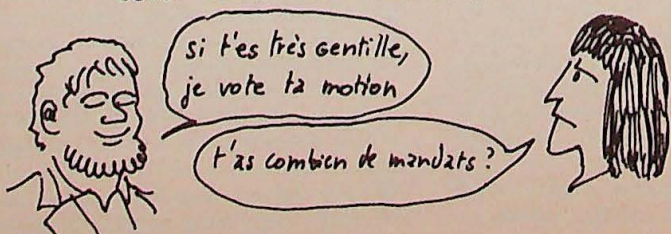 si t'es très gentille,
je vote ta motion
t'as combien de mandats ?